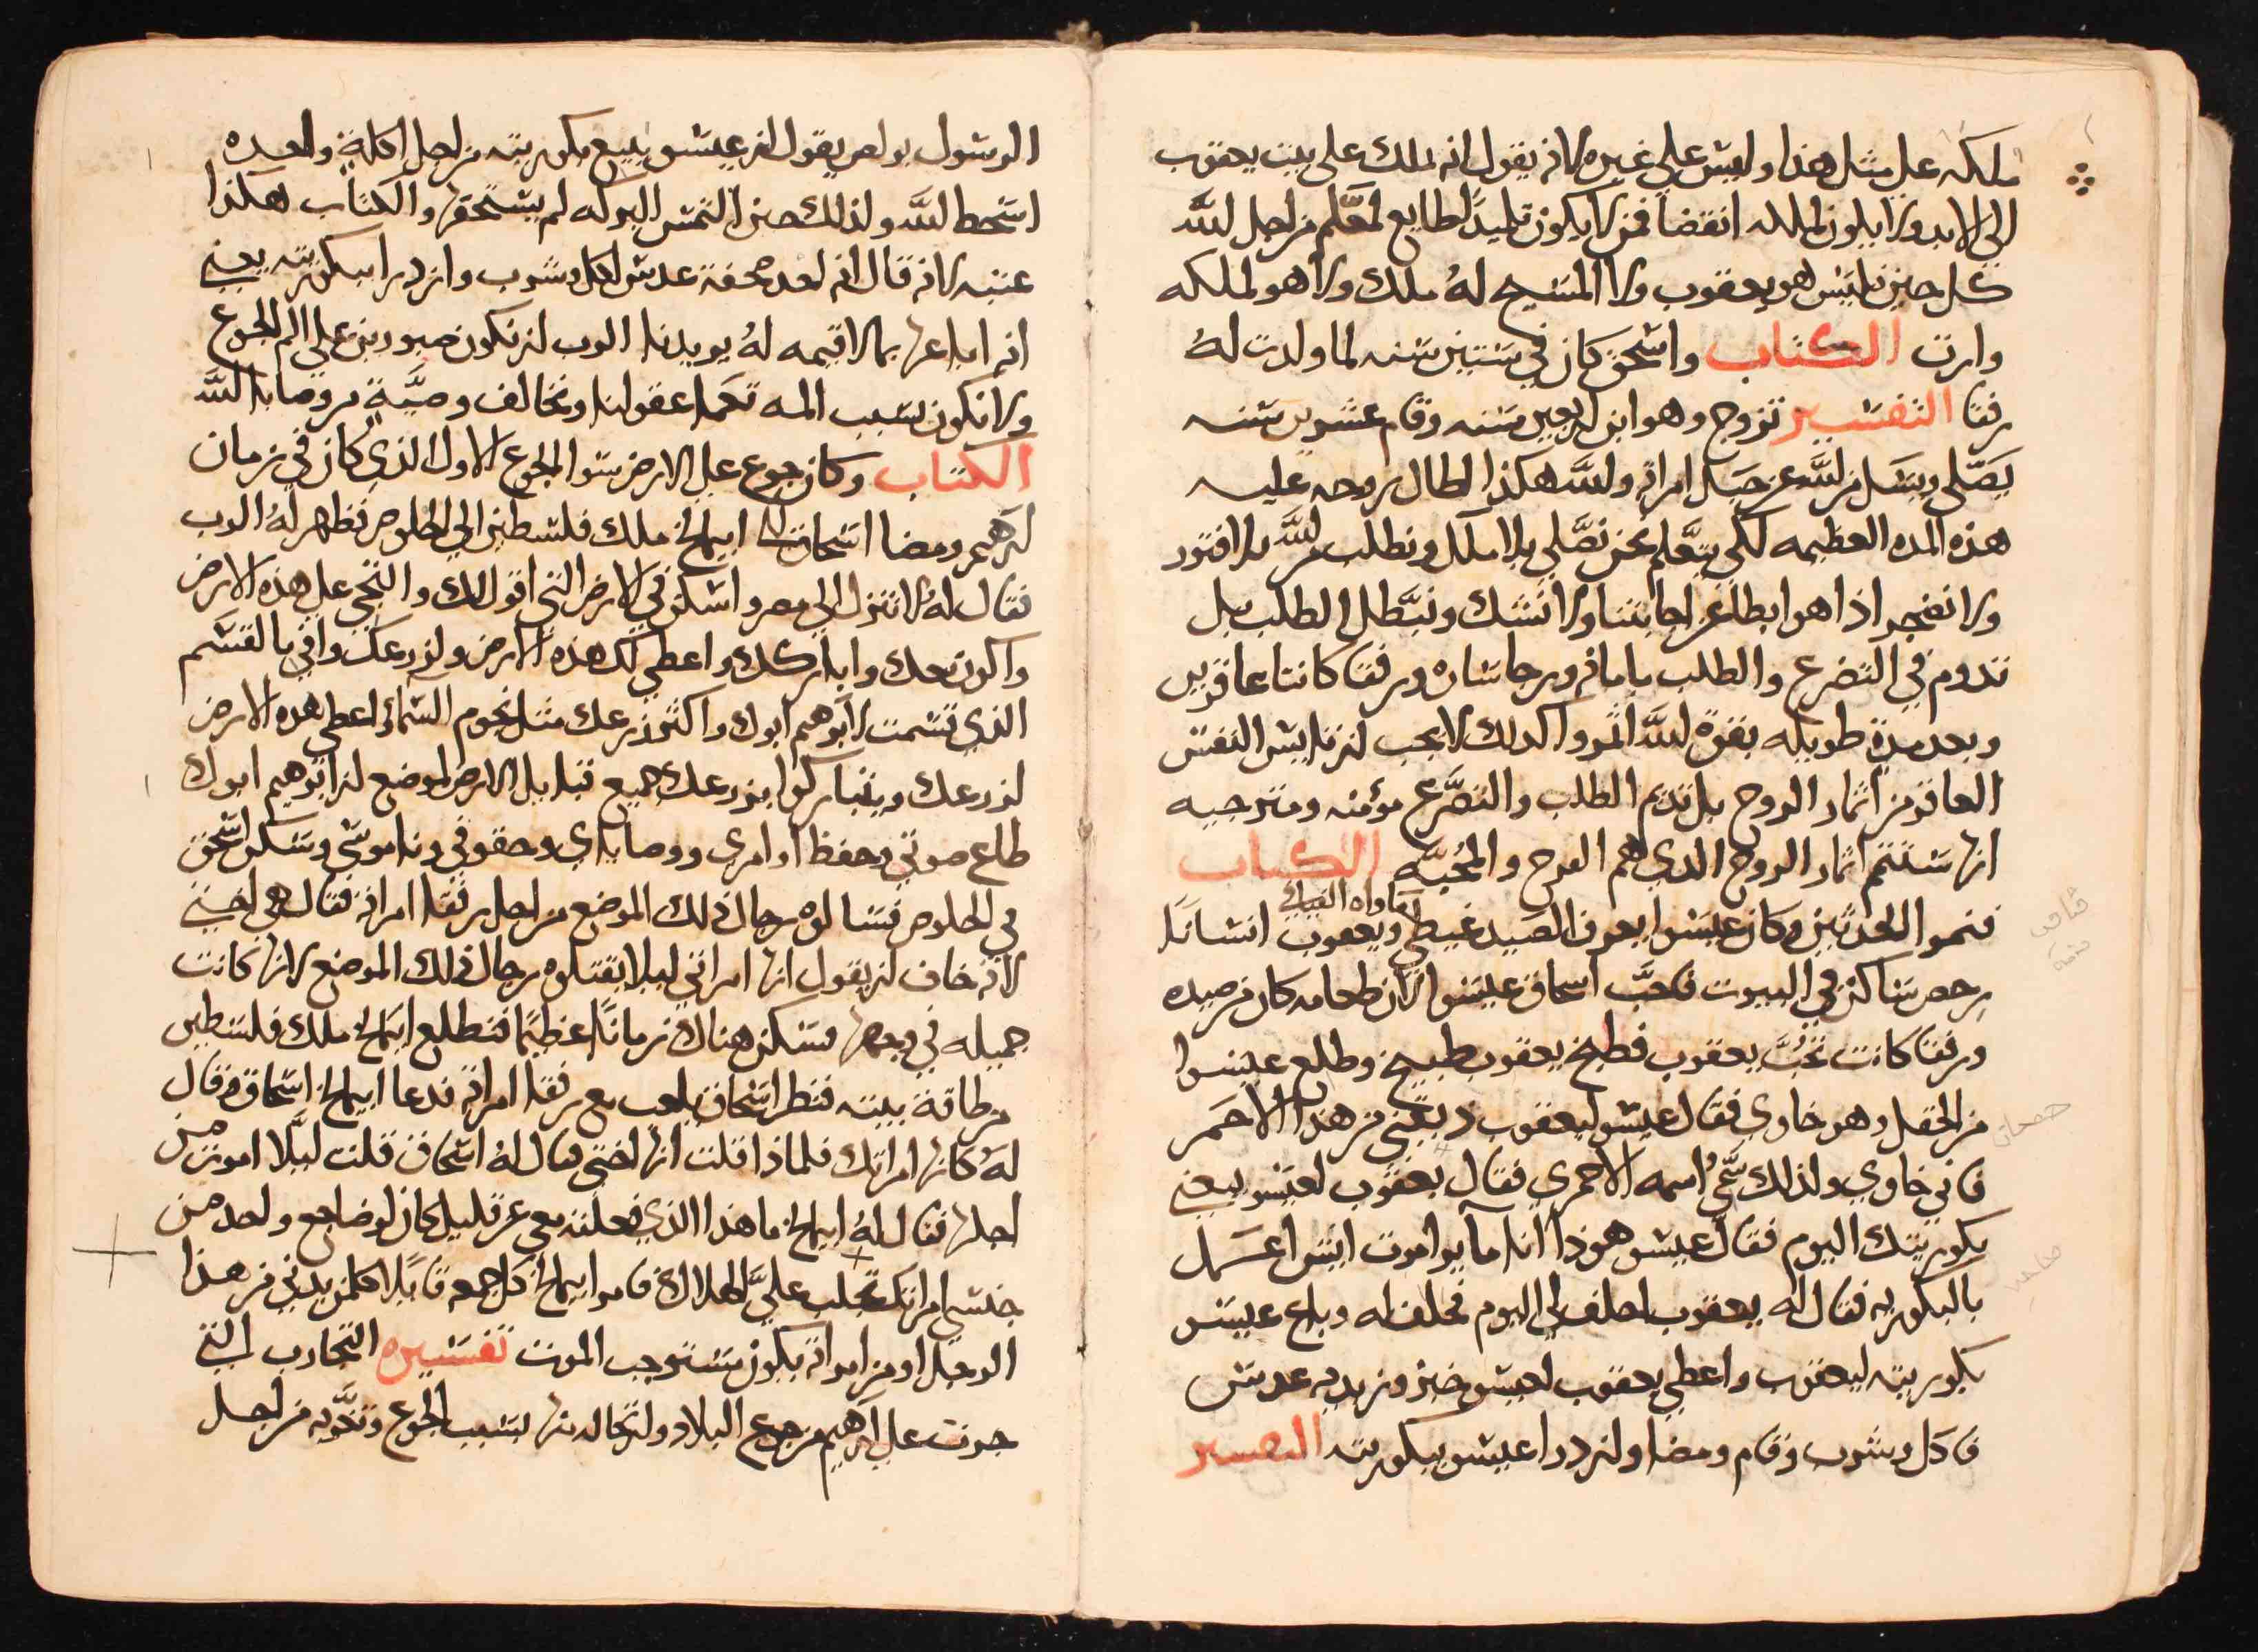 ملكه على مثل هذا وليس على غيره لانه يقول انه يملك على بيت يعقوب
الى الابد ولا يكون لملكه انقضا فمن لا يكون تلميذاً طايع لمعلم من اجل الله
كل حين فليس هو يعقوب ولا المسيح لهُ ملك ولا هو لملكه
وارث الكتاب واسحق كان في ستين سنه لما ولدت لهُ
رفقا التفسير تزوج وهو ابن اربعين سنه وقام عشرين سنه
يصّلي ويسل من الله عن حبل امراته والله هكذا اطال روحه عليه
هذه المده العظيمه لكي يتعّلم نحن نصّلي بلا ملل ونطلب من الله بلا فتور
ولا نضجر اذا هو ابطا عن اجابتنا ولا نشك ونبّطل الطلب بل
ندوم في التضرع والطلب بامانه ورجا ساره ورفقا كانتا عاقرين
وبعد مدة طويله بقوة الله اثمروا كدلك لا يجب لنا نايس النفس
العاقر من اثمار الروح بل نديم الطلب والتضّرع مؤمنه ومترجيه
انها ستنتم اثمار الروح الدي هم الفرح والمُحبّه الكتاب
فنموا الحدثين وكان عيسوا يعرف الصيد غيطي ماواه الغيال ويعقوب انساناً
رحص ساكن في البيوت فحبّ اسحاق عيسوا لأن طعامه كان من صيده
ورفقا كانت تحُبّ يعقوب فطبخ يعقوب طبيخ وطلع عيسوا
من الحقل وهو خاوي فقال عيسو ليعقوب ديقني من هذا الاحمر
فاني خاوي ولذلك سّمي اسمه الاحمري فقال يعقوب لعيسو بيعني
بكوريتك اليوم فقال عيسو هوذا انا ماًبوا موت ايش اعمل
بالبكوريه فقال له يعقوب احلف لي اليوم فحلف له وباع عيسو
بكوريته ليعقوب واعطي يعقوب لعيسو خبز وزبديه عدس
فاكل وشرب وقام ومضا وازدرا عيسو ببكوريته التفسير
الرسول بولص يقول ان عيسو يبيع بكوريته من اجل اكلة واحده
اسخط الله ولذلك حين التمس البركه لم يستحقها والكتاب هكذا
عتبه لانه قال انه لعد صحفة عدس اكل وشرب وازدرا ببكوريته يعني
انه اباعها بما لا قيمه لهُ يريدنا الرب ان نكون صبورين على الم الجوع
ولا نكون بسبب المه تعما عقولنا ونخالف وصيّة من وصايا الله
الكتاب وكان جوع على الارض سوا الجوع الاول الذي كان في زمان
ابرهيم ومضا اسحاق الى ابيمالخ ملك فلسطين الي الخلوص فظهر لهُ الرب
فقال لهُ لا تنزل الي مصر واسكن في الارض التي اقول لك والتجي على هذه الارض
واكون معك واباركك واعطي لك هذه الارض ولزرعك وافي بالقسم
الذي قسمت لابرهيم ابوك واكثر زرعك مثل نجوم السمائ اعطي هده الارض
لزرعك ويتباركوا بزرعك جميع قبايل الارض لموضع ان ابرهيم ابوك
طاع صوتي وحفظ اوامري ووصاياي وحقوقي وناموسي وسكن اسحق
في الخلوص فسالوه رجال ذلك الموضع من اجل رفقا امراته فقال هي اختي
لانه خاف ان يقول انها امراتي ليلا يقتلوه رجال ذلك الموضع لانها كانت
جميله في وجهها فسكن هناك زماناً عظيماً فتطلع ابيمالخ ملك فلسطين
من طاقة بيته فنظر اسحاق يلعب مع رفقا امراته فدعا ابيمالخ اسحاق وقال
لهُ كانها امراتك فلماذا قلت انها اختي فقال لهُ اسحاق قلت ليّلا اموت من
اجلها فقال لهُ ابيمالخ ما هذا الذي فعلته معي عن قليل كان لو ضاجع واحد من
جنسي امراتك تجلب عليّ الهلاك فامر ابيمالخ كل جمعه قايًلا كلمن يدني من هذا
الرجل او من امراته يكون مستوجب الموت تفسيره التجارب التي
جرت على ابرهيم من جوع البلاد وارتحاله منها بسبب الجوع وتغّربه من اجل